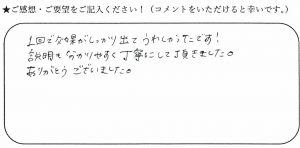 ★ご感想・ご要望をご記入ください！（コメントをいただけると幸いです。）
1回で効果がしっかり出てうれしかったです！
説明も分かりやすく丁寧にして頂きました。
ありがとうございました。